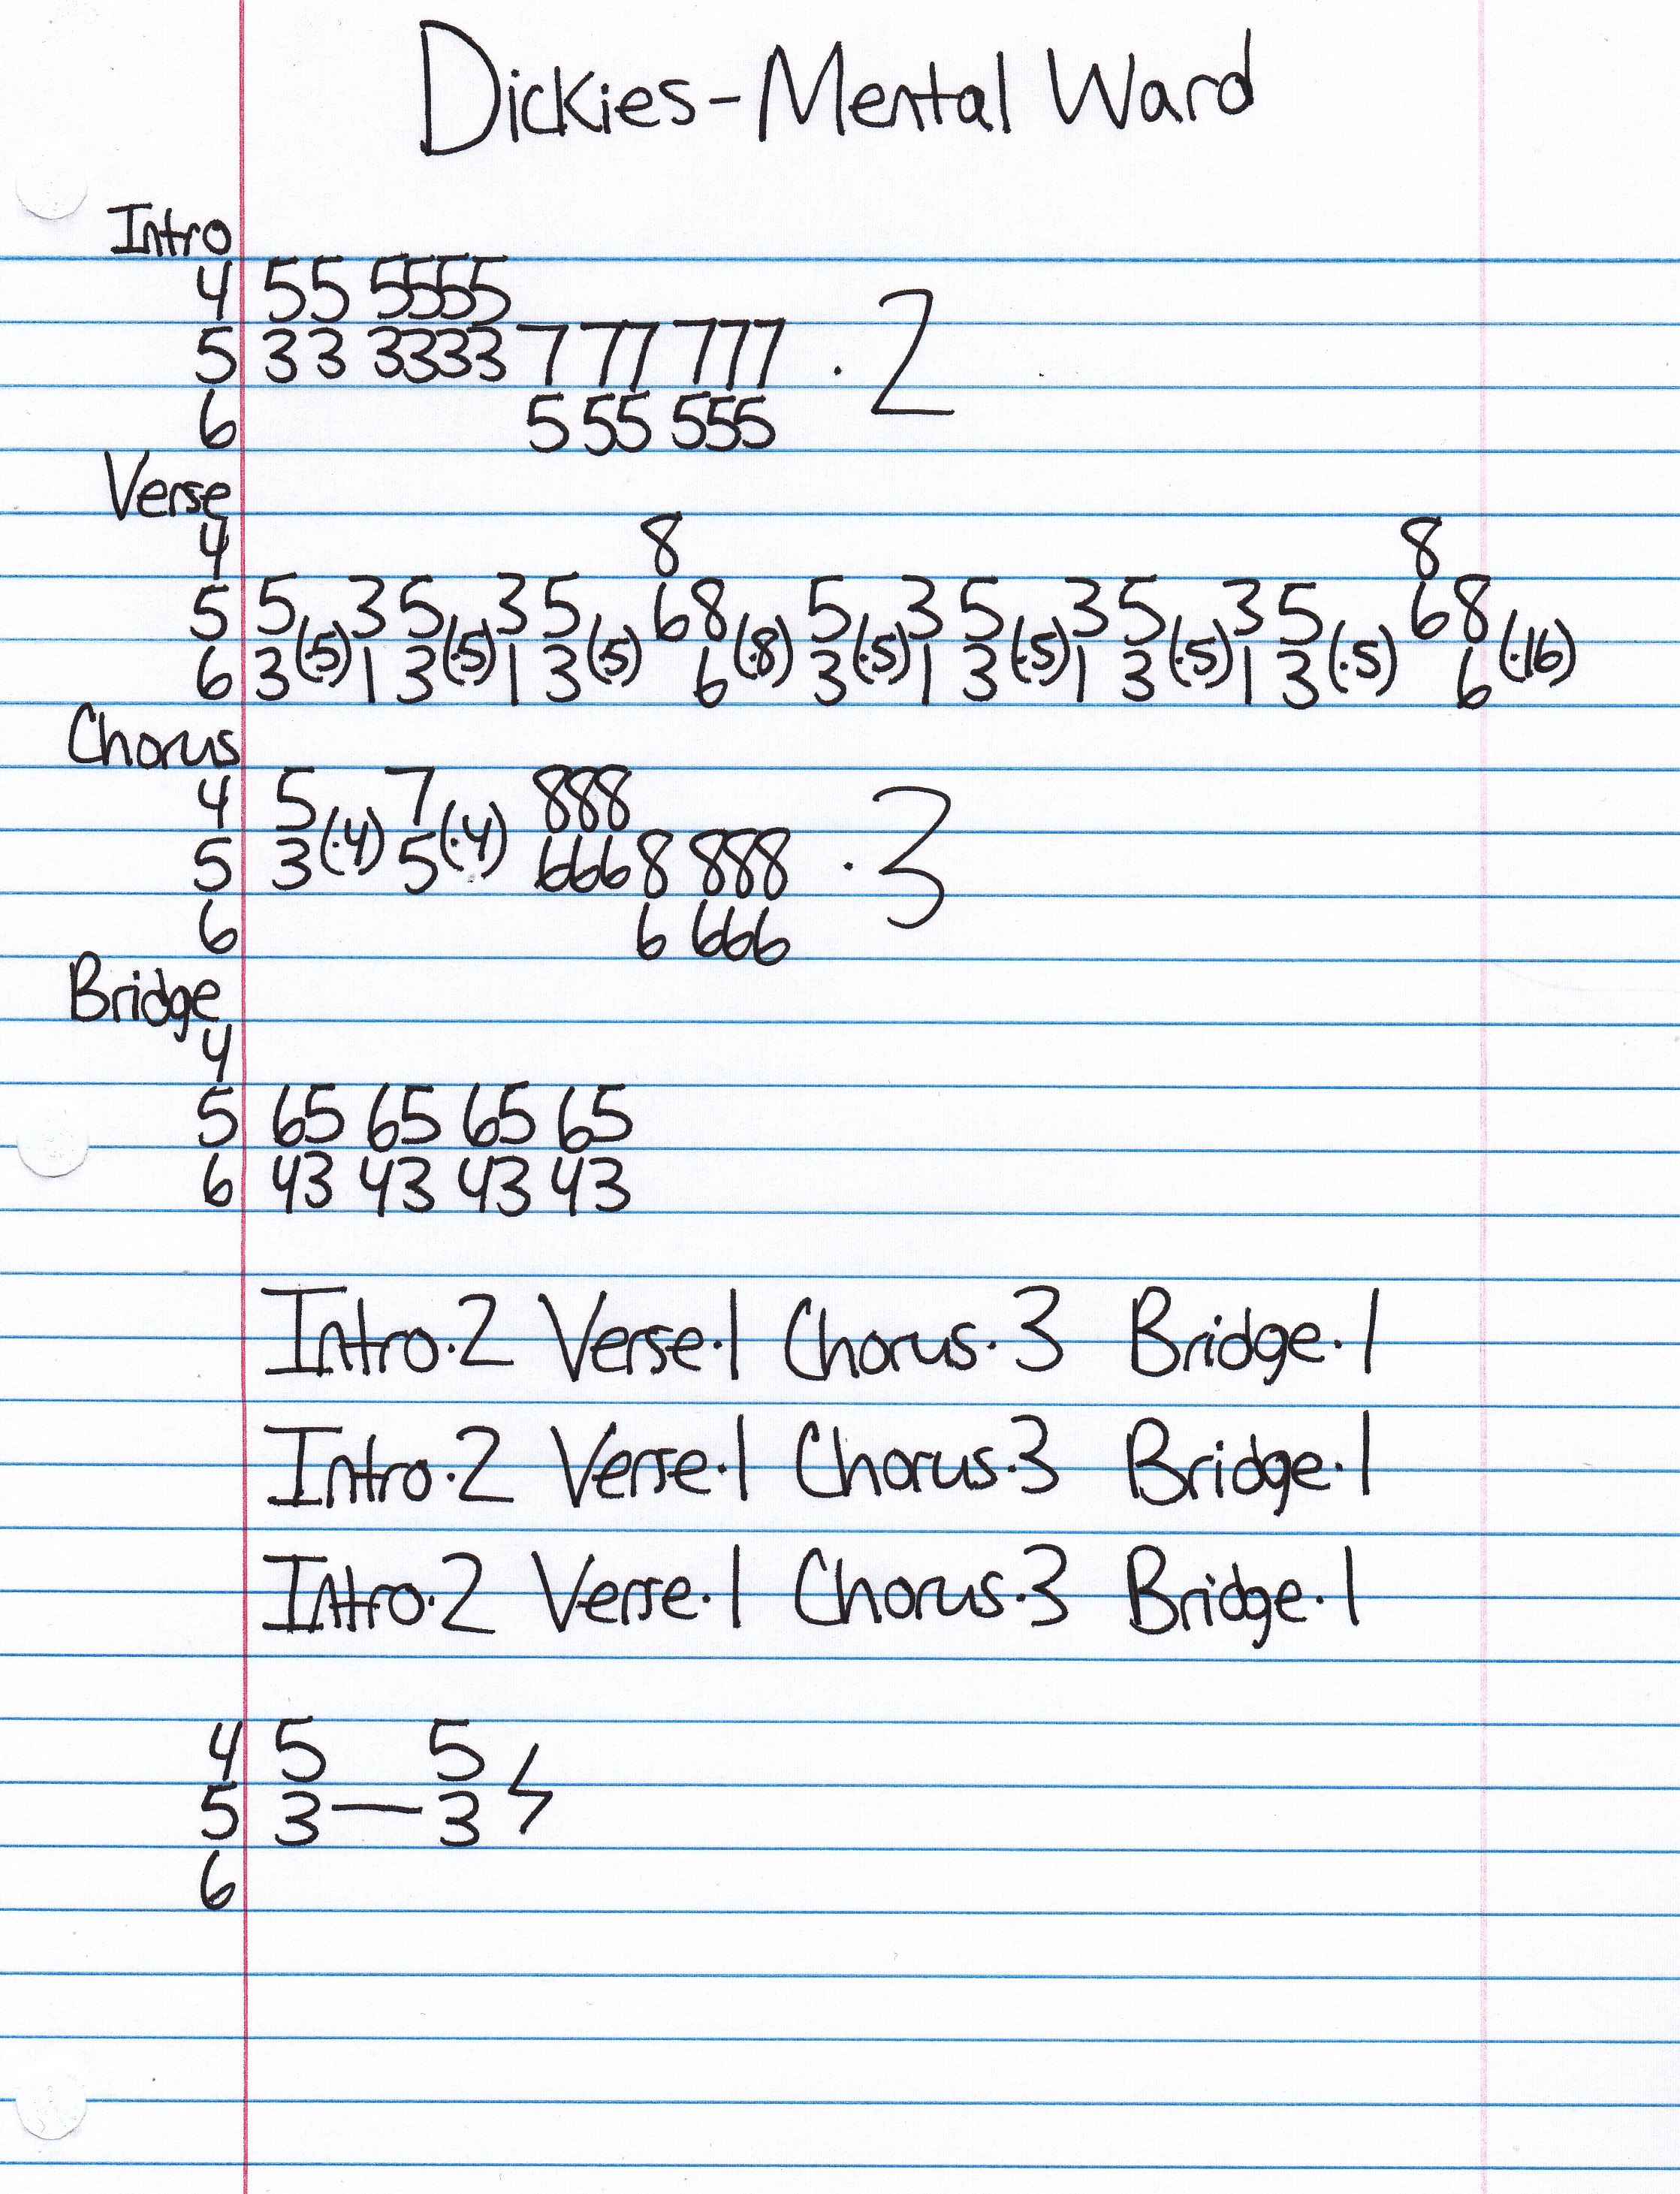 Dickies - Mental Ward
Intro
4 55 5555
5 33 3333 7 77 777 · 2
6 5 55 555
Verse
4 8 8
5 5 3 5 3 5 68 5 3 5 3 5 3 5 68
6 3 (·5) 1 3 (·5) 1 3 (·5) 6 (·8) 3 (·5) 1 3 (·5) 1 3 (·5) 1 3 (·5) 6 (·16)
Chorus
4 5 7 888
5 3 (·4) 5 (·4) 666 8 888 · 3
6 6 666
Bridge
4
5 65 65 65 65
6 43 43 43 43
Intro·2 Verse·1 Chorus·3 Bridge·1
Intro·2 Verse·1 Chorus·3 Bridge·1
Intro·2 Verse·1 Chorus·3 Bridge·1
4 5 5
5 3 — 3
6